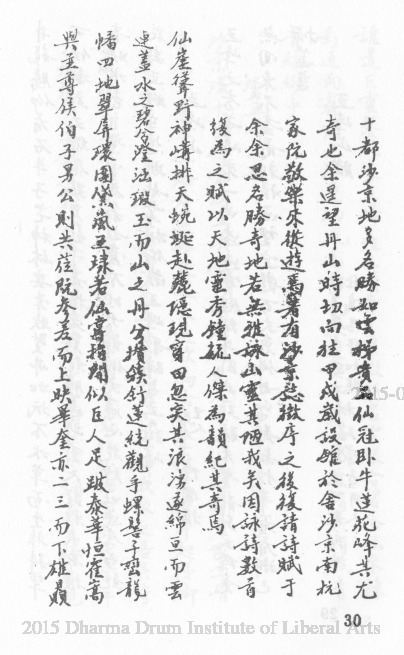 十都沙京地多名勝如雲梯嵒仙冠臥牛蓮花降其尤
奇也余遲望丹山時切向往甲戌歲設館於舍沙京南杭
家阮敬樂來從遊焉著有沙京徵序之後復請詩賦于
余余思名勝奇地若無雅詠山靈其陋我矣因詠詩數首
復為之賦以天地靈秀鍾毓人傑為韻紀其奇焉
仙崖聳野神嶂排天蜿蜒赴麓隱現穿田忽突其浪湧逐綿亘而雲
連蓋水之碧兮瀅泓玉而山之丹兮攢簇舒蓮觀乎螺髻千巒龍
幡四地翠屏環圍黛互球若仙掌指閒似巨人足跛泰華恒霍嵩
與並尊侯伯子男公則共莅阮參差而上映華奎亦二三而下雄贔
2015-0
30
2015 Dharma Drum Institute of Liberal Arts